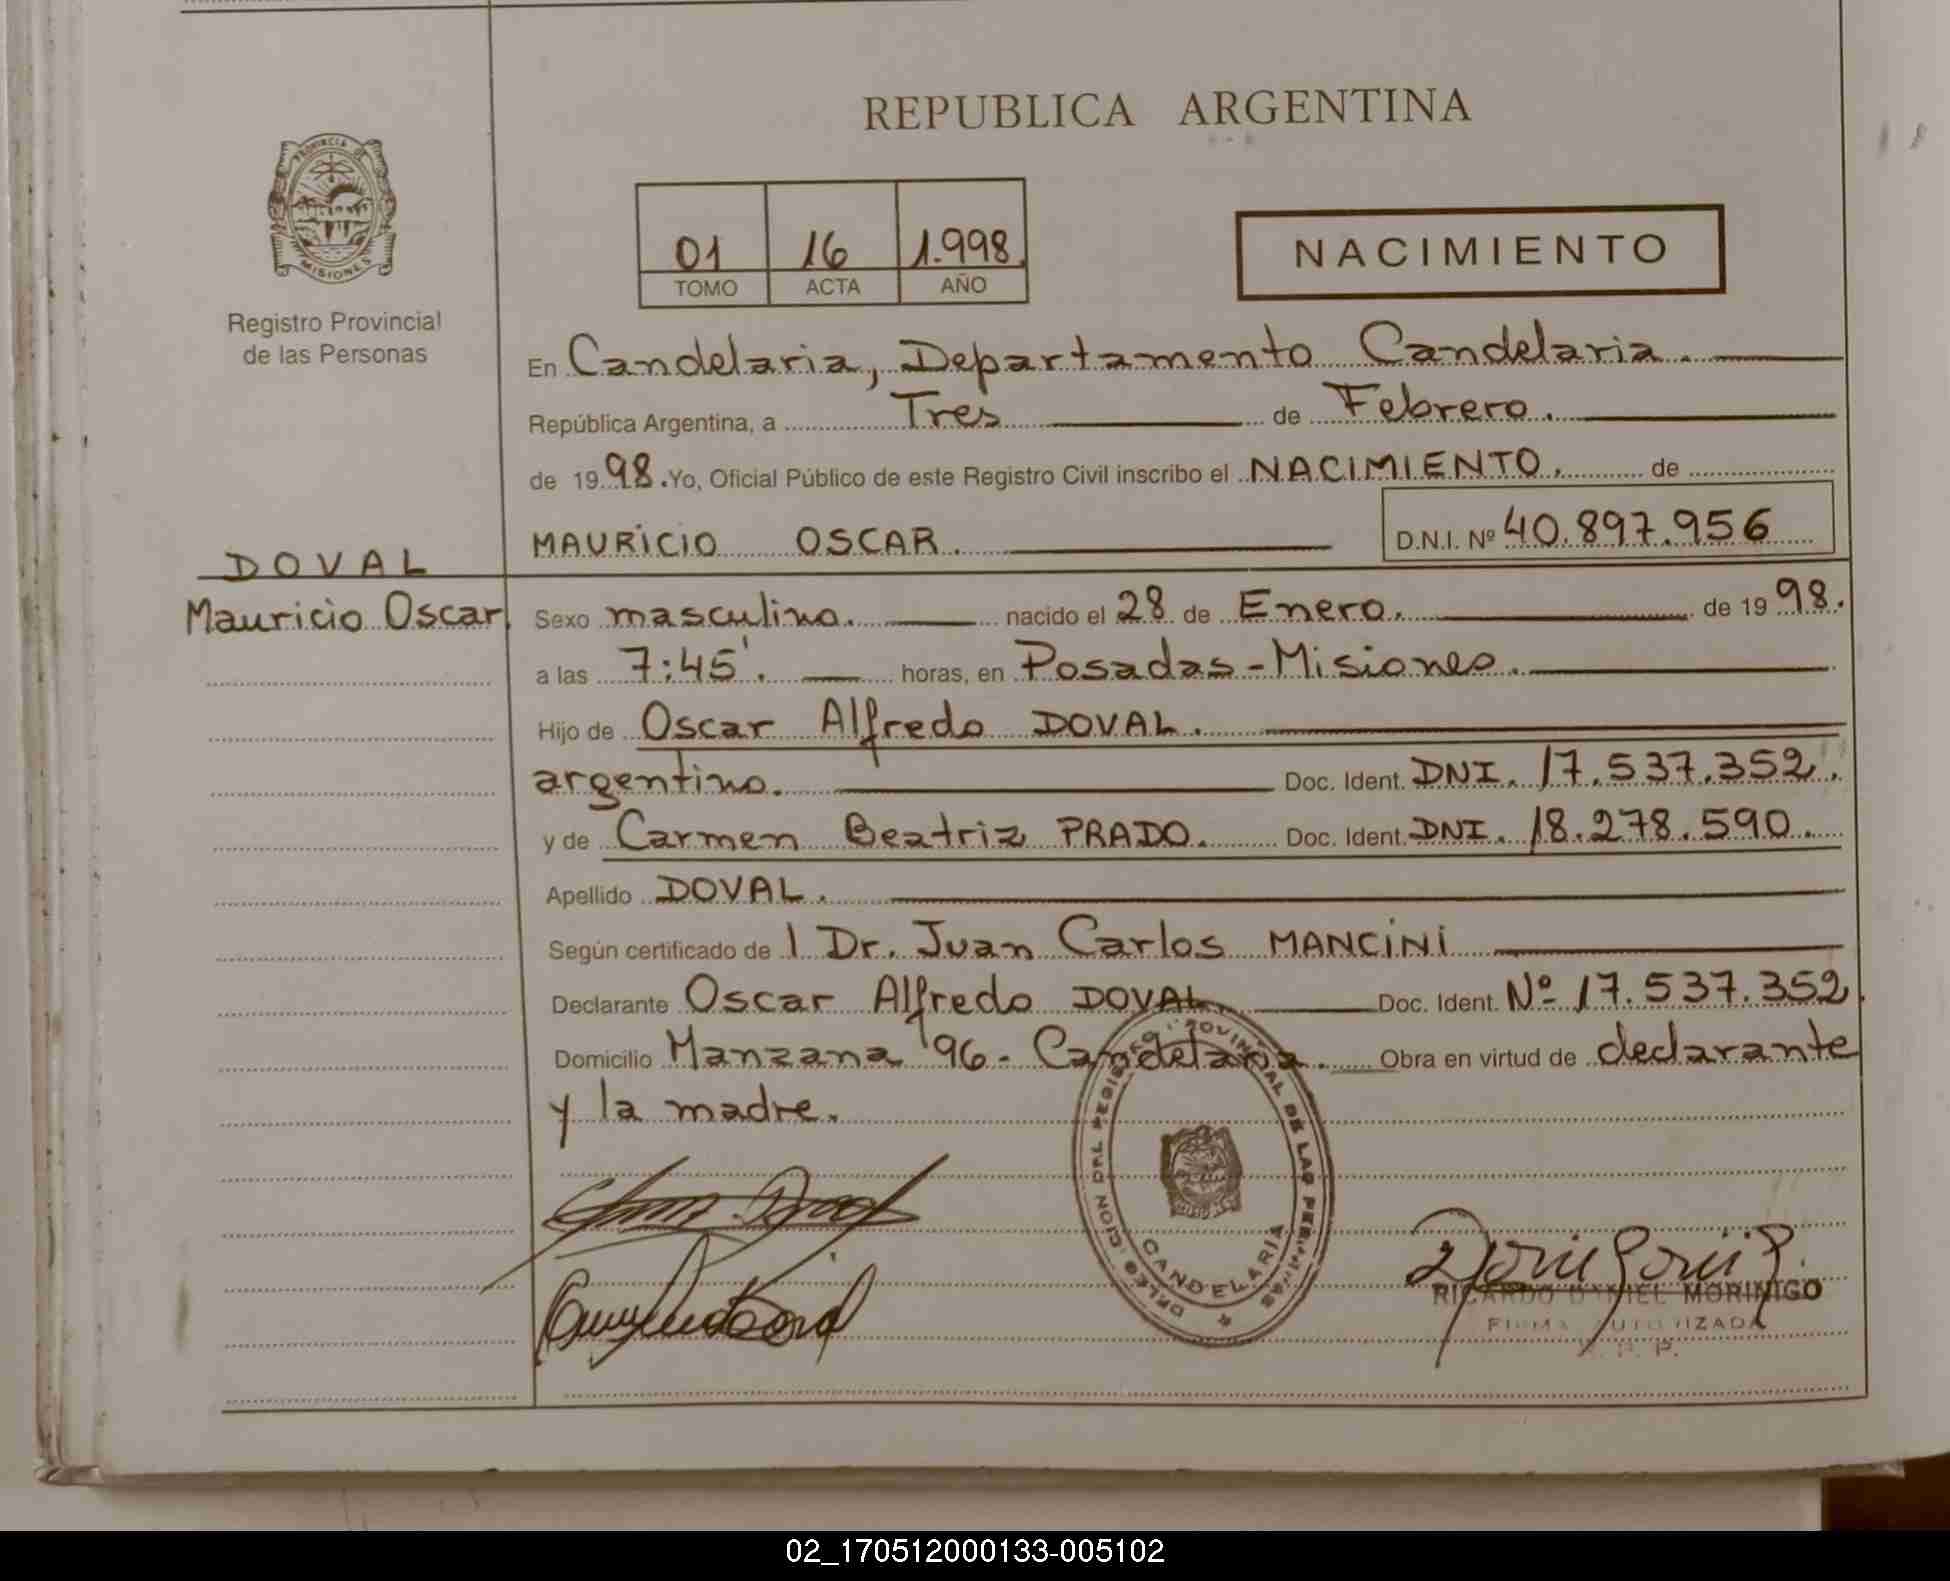 REPUBLICA ARGENTINA
PROVINCIA DE
MISIONES
Registro Provincial
de las Personas
01 16 1.998
TOMO ACTA AÑO
NACIMIENTO
En Candelaria, Departamento Candelaria.
República Argentina, a Tres de Febrero.
de 1998. Yo, Oficial Público de este Registro Civil inscribo el NACIMIENTO. de
MAURICIO OSCAR. D.N.I. Nº 40.897.956
DOVAL
Mauricio Oscar.
Sexo masculino. nacido el 28 de Enero. de 1998.
a las 7:45'. horas, en Posadas-Misiones.
Hijo de Oscar Alfredo DOVAL.
argentino. Doc. Ident. DNI. 17.537.352.
y de Carmen Beatriz PRADO. Doc. Ident. DNI. 18.278.590.
Apellido DOVAL.
Según certificado de l Dr. Juan Carlos MANCINI
Declarante Oscar Alfredo DOVAL. Doc. Ident. Nº 17.537.352.
Domicilio Manzana 96 - Candelaria. Obra en virtud de declarante
y la madre.
DELEGACION DEL REGISTRO PROVINCIAL DE LAS PERSONAS
CANDELARIA
RICARDO DANIEL MORINIGO
FIRMA AUTORIZADA
R. P. P.
02_170512000133-005102